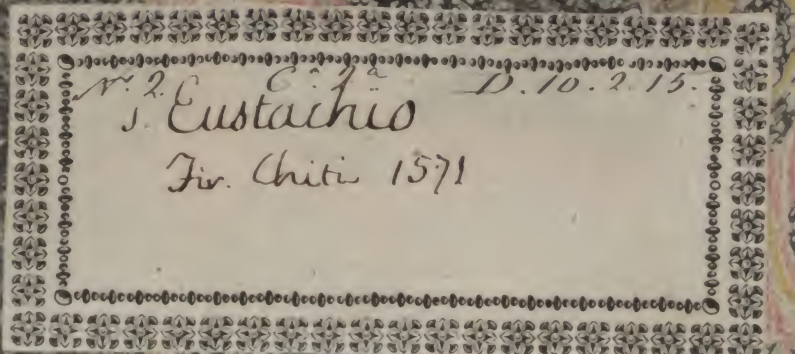 N. 2. C. 2a D. 10. 2. 15.
S. Eustachio
Fir. Chiti 1571